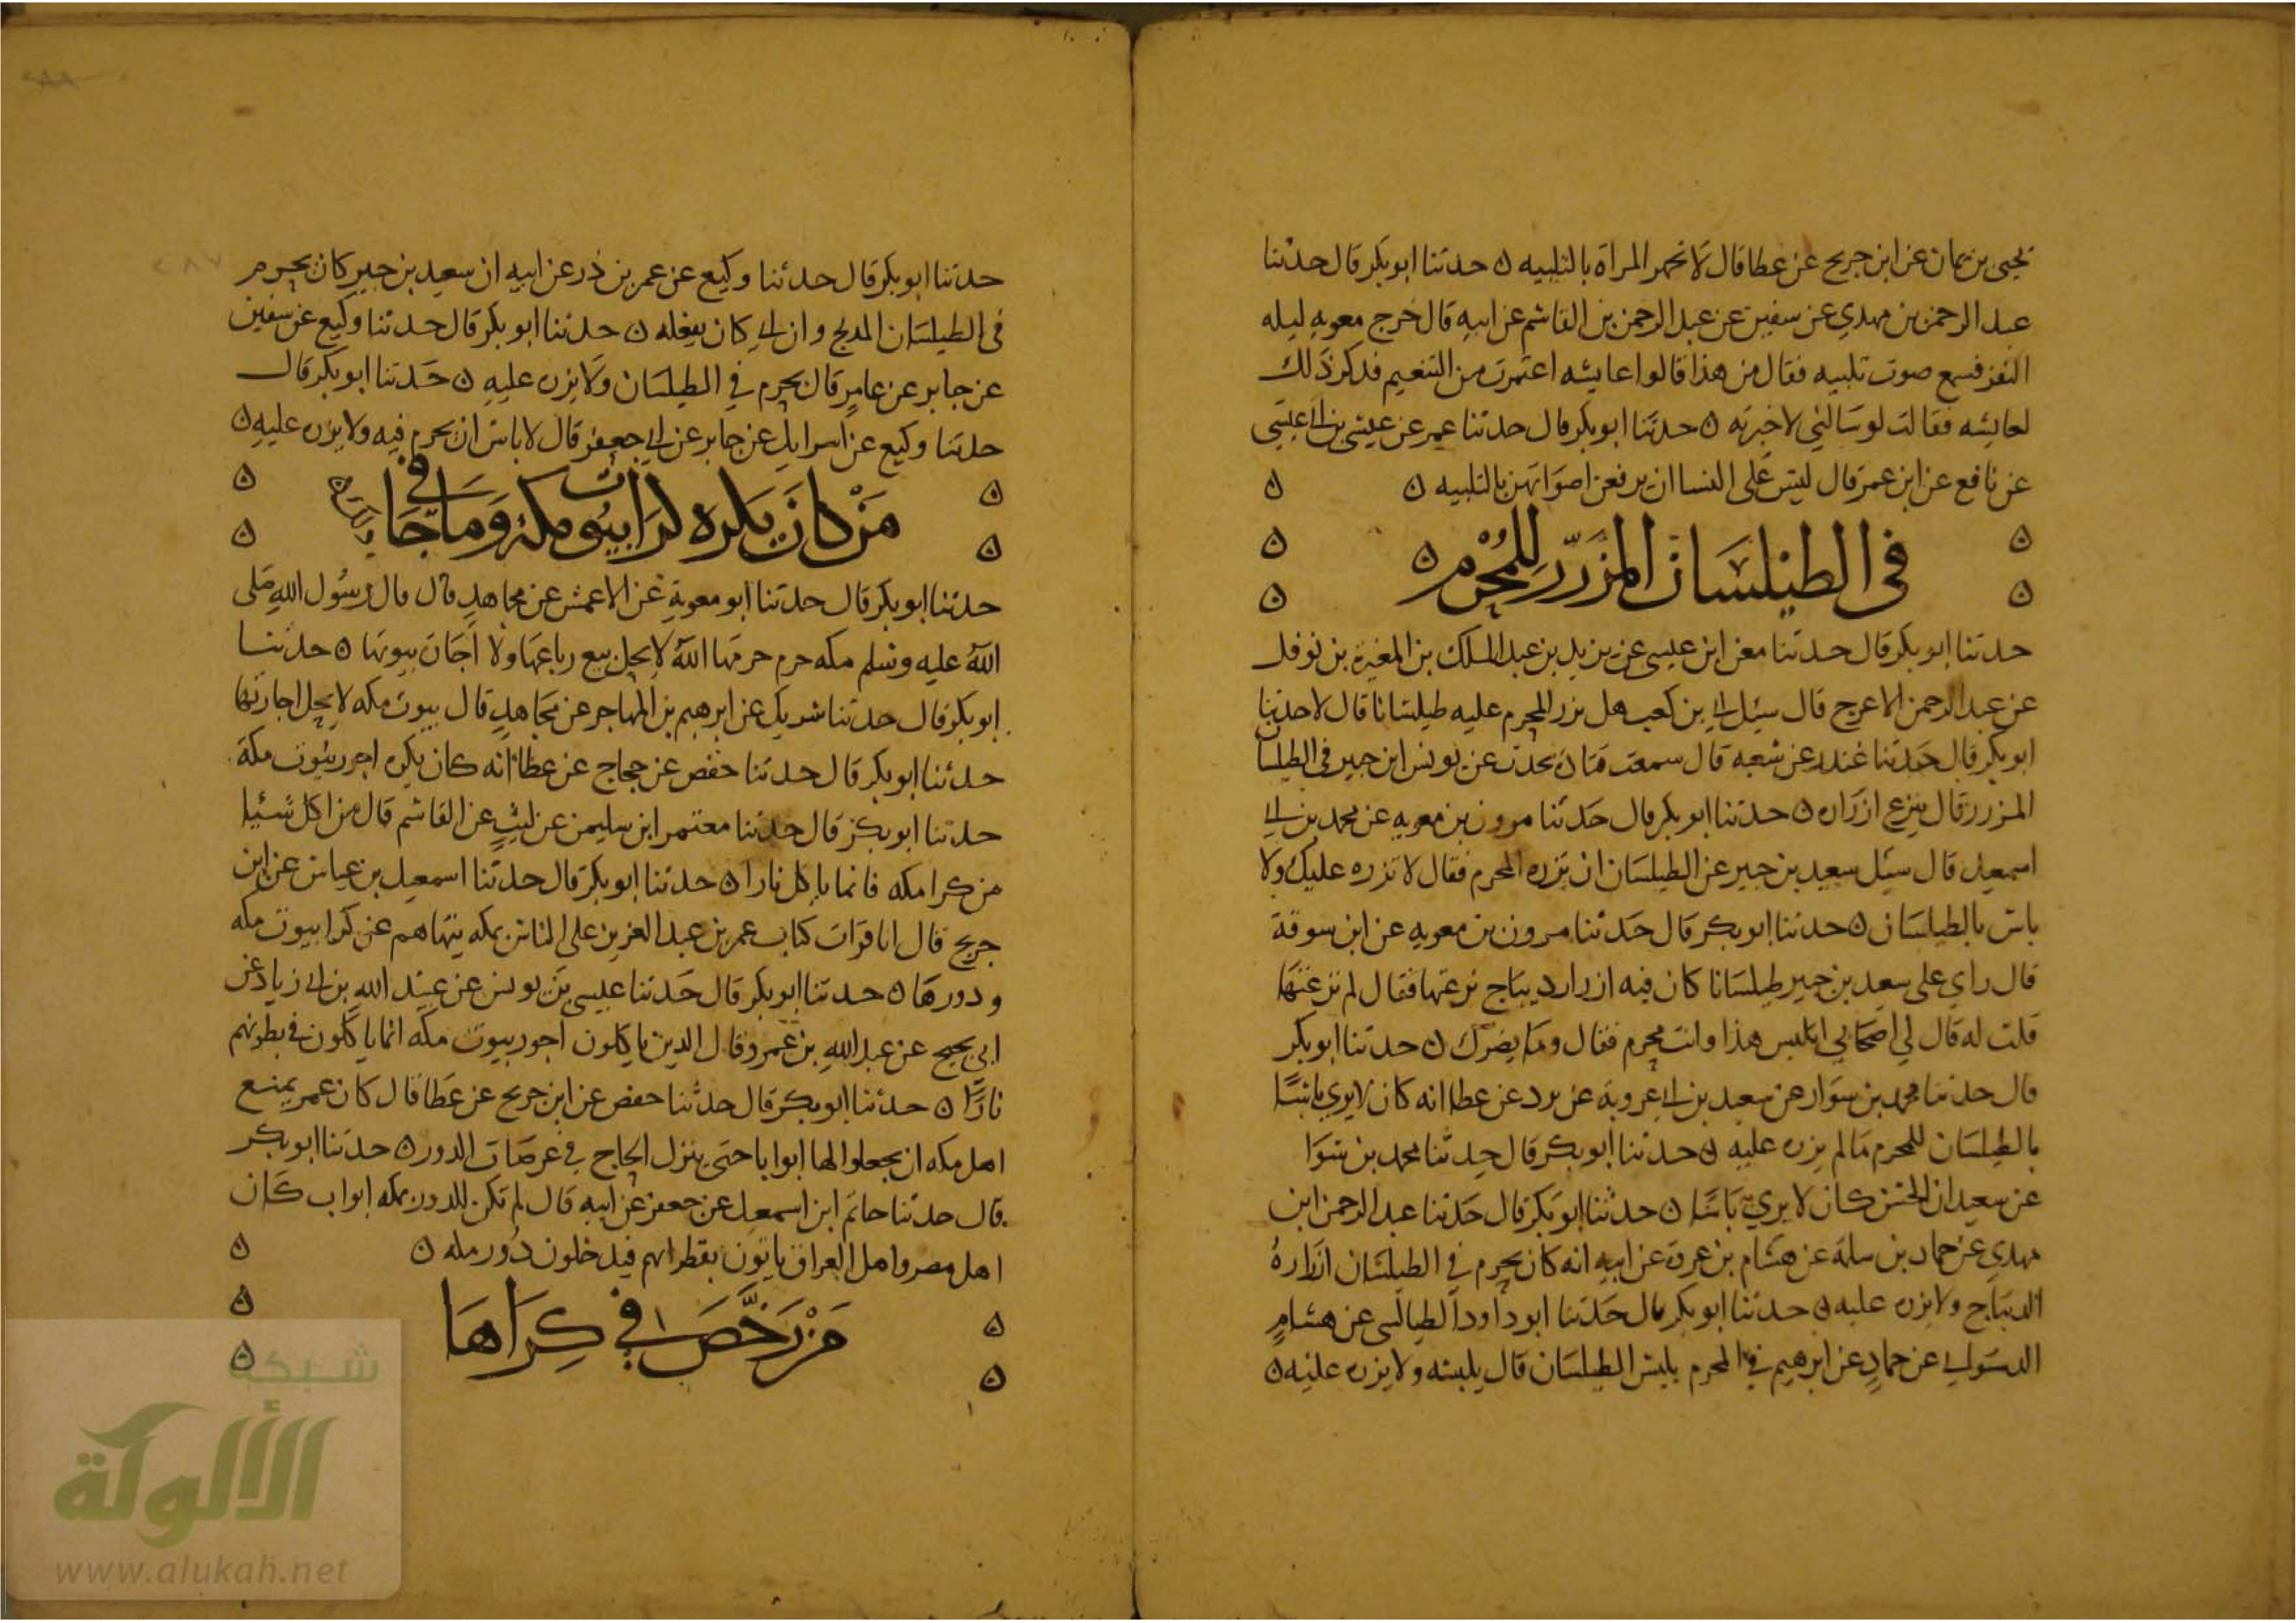 يحيى بن يمان عن ابن جريج عن عطا قال لا تجهر المراة بالتلبيه ن حدثنا ابو بكر قال حدثنا
عبد الرحمن بن مهدي عن سفين عن عبد الرحمن بن القاسم عن ابيه قال خرج معويه ليله
النفر فسمع صوت تلبيه فقال من هذا قالوا عايشه اعتمرت من التنعيم فذكر ذلك
لعايشه فقالت لو سالني لاخبرته ن حدثنا ابو بكر قال حدثنا عمر عن عيسى بن ابي عيسى
عن نافع عن ابن عمر قال ليس على النسا ان يرفعن اصواتهن بالتلبيه ن
في الطيلسان المزرر للمحرم ن
حدثنا ابو بكر قال حدثنا معن ابن عيسى عن يزيد بن عبد الملك بن المغيرة بن نوفل
عن عبد الرحمن الاعرج قال سئل ابي بن كعب هل يزر المحرم عليه طيلسانا قال لا حدثنا
ابو بكر قال حدثنا غندر عن شعبه قال سمعت يحدث عن يونس ابن جبير في الطيلسان
المزرر قال ينزع ازراره ن حدثنا ابو بكر قال حدثنا مرون بن معويه عن محمد بن ابي
اسمعيل قال سئل سعيد بن جبير عن الطيلسان ان يزره المحرم فقال لا تزره عليك ولا
باس بالطيلسان ن حدثنا ابو بكر قال حدثنا مرون بن معويه عن ابن سوقة
قال راي على سعيد بن جبير طيلسانا كان فيه ازرار ديباج نزعتها فقال لم نزعتها
قلت له قال لي اصحابي اتلبس هذا وانت محرم فقال وما يضرك ن حدثنا ابو بكر
قال حدثنا محمد بن سوار عن سعيد بن ابي عروبة عن برد عن عطا انه كان لا يري باسا
بالطيلسان للمحرم ما لم يزره عليه ن حدثنا ابو بكر قال حدثنا محمد بن سوا
عن سعيد ان الحسن كان لا يري باسا ن حدثنا ابو بكر قال حدثنا عبد الرحمن ابن
مهدي عن حماد بن سلمة عن هشام بن عروة عن ابيه انه كان يحرم في الطيلسان ازراره
الديباج ولا يزره عليه ن حدثنا ابو بكر قال حدثنا ابو داود الطيالسي عن هشام
الدستواي عن حماد عن ابرهيم في المحرم يلبس الطيلسان قال يلبسه ولا يزره عليه ن
حدثنا ابو بكر قال حدثنا وكيع عن عمر بن ذر عن ابيه ان سعيد بن جبير كان يحرم
في الطيلسان المدبج وان ابي كان يفعله ن حدثنا ابو بكر قال حدثنا وكيع عن سفين
عن جابر عن عامر قال يحرم في الطيلسان ولا يزره عليه ن حدثنا ابو بكر قال
حدثنا وكيع عن اسرايل عن جابر عن ابي جعفر قال لا باس ان يحرم فيه ولا يزره عليه ن
من كان يكره كرا بيوت مكة وما جا في
حدثنا ابو بكر قال حدثنا ابو معوية عن الاعمش عن مجاهد قال قال رسول الله صلى
الله عليه وسلم مكه حرم حرمها الله لا يحل بيع رباعها ولا اجارة بيوتها ن حدثنا
ابو بكر قال حدثنا شريك عن ابرهيم بن المهاجر عن مجاهد قال بيوت مكه لا يحل اجارتها
حدثنا ابو بكر قال حدثنا حفص عن حجاج عن عطا انه كان يكره اجور بيوت مكة
حدثنا ابو بكر قال حدثنا معتمر ابن سليمن عن ليث عن القاسم قال من اكل شيئا
من كرا مكه فانما ياكل نارا ن حدثنا ابو بكر قال حدثنا اسمعيل بن عياش عن ابن
جريج قال انا قرات كتاب عمر بن عبد العزيز على الناس بمكه ينهاهم عن كرا بيوت مكه
ودورها ن حدثنا ابو بكر قال حدثنا عيسى بن يونس عن عبيد الله بن ابي زياد عن
ابي نجيح عن عبد الله بن عمرو قال الدين ياكلون اجور بيوت مكه انما ياكلون في بطونهم
نارا ن حدثنا ابو بكر قال حدثنا حفص عن ابن جريج عن عطا قال كان عمر يمنع
اهل مكه ان يجعلوا لها ابوابا حتى ينزل الحاج في عرصات الدور ن حدثنا ابو بكر
قال حدثنا حاتم ابن اسمعيل عن جعفر عن ابيه قال لم تكن للدور بمكه ابواب كان
اهل مصر واهل العراق ياتون بقطراتهم فيدخلون دور مكه ن
من رخص في كراها
شبكة
الألوكة
www.alukah.net